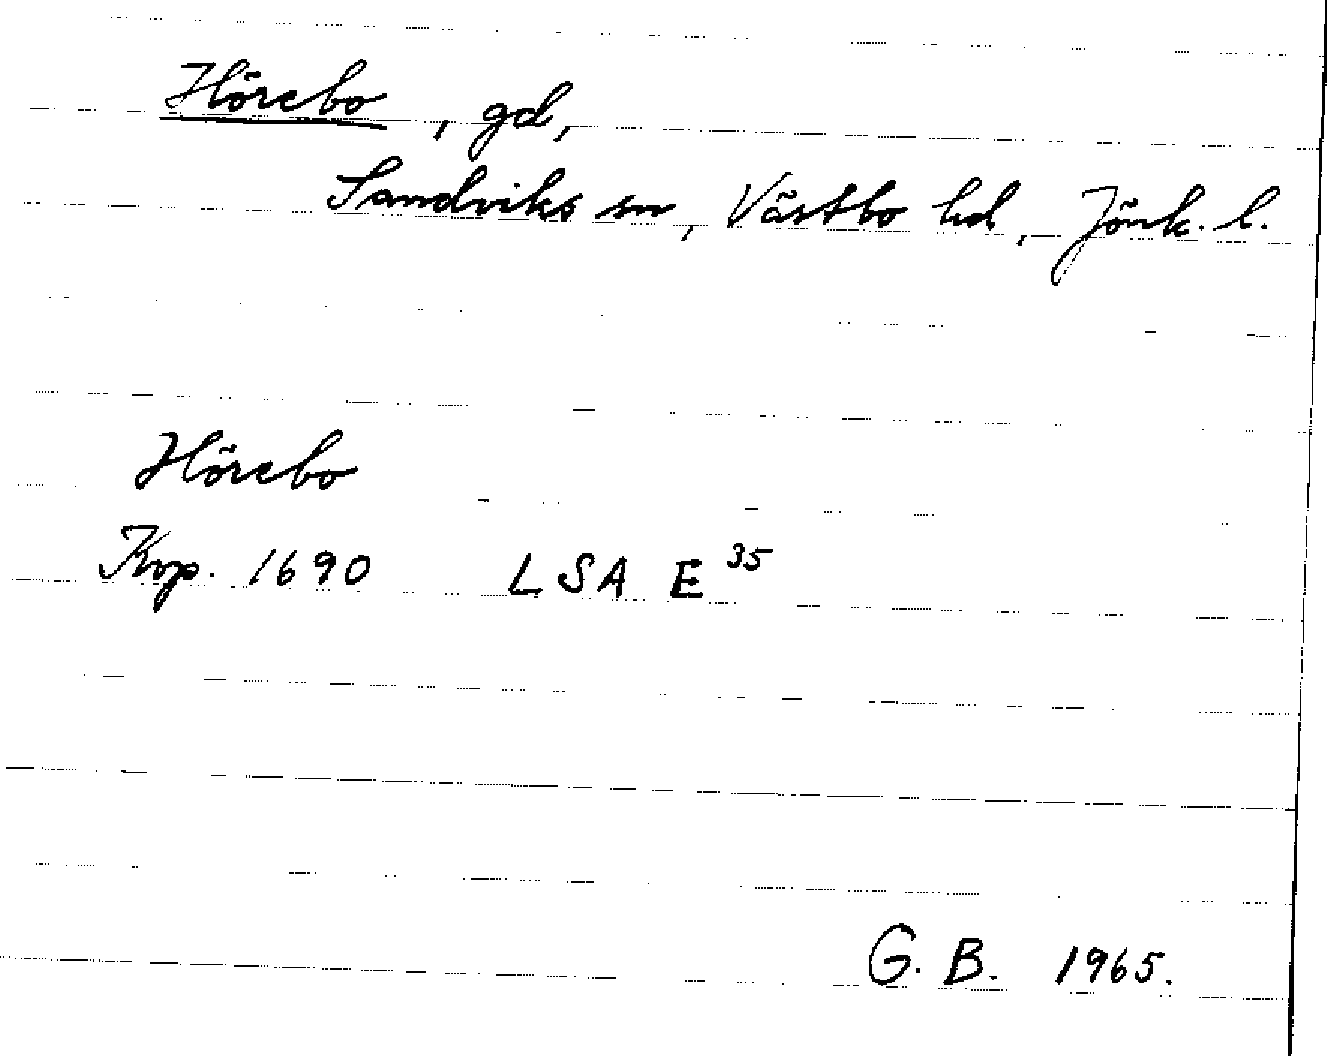 Hörebo, gd,
Sandviks sn, Västbo hd, Jönk. l.
Hörebo
Kop. 1690 LSA E 35
G. B. 1965.